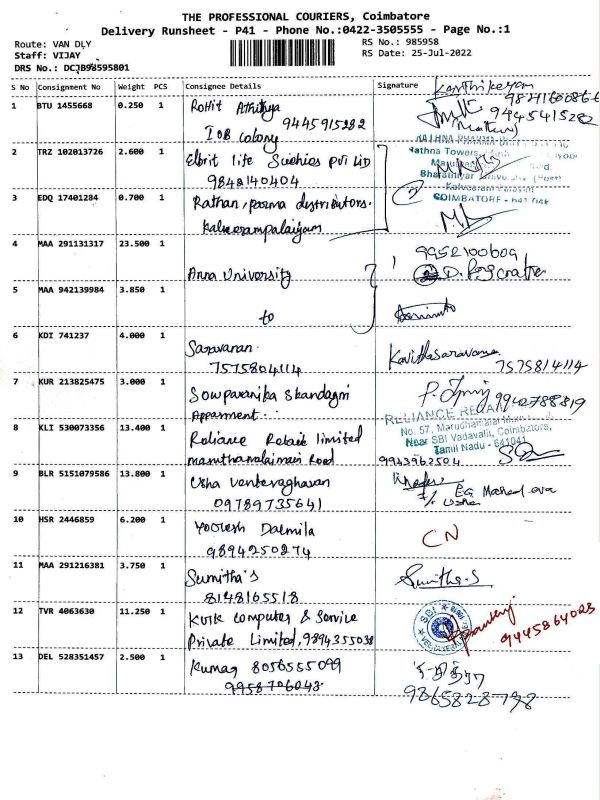 THE PROFESSIONAL COURIERS, Coimbatore
Delivery Runsheet - P41 - Phone No.:0422-3505555 - Page No.:1
Route: VAN DLY
RS No.: 985958
Staff: VIJAY
RS Date: 25-Jul-2022
DRS No.: DCJB98595801
S No Consignment No Weight PCS Consignee Details Signature
1 BTU 1455668 0.250 1 Rohit Athithya
IOB Colony 9445915282
Karthikeyan
9445415282
2 TRZ 102013726 2.600 1 Elbrit life Sciences Pvt Ltd
9848140404
Rathna Towers
3 EDQ 17401284 0.700 1 Rathan, parma distributors.
Kalveerampalaiyam
COIMBATORE
4 MAA 291131317 23.500 1 Anna University
9952100609
5 MAA 942139984 3.850 1 to
6 KDI 741237 4.000 1 Saravanan.
7575804114
Kavithasaravana
7575814114
7 KUR 213825475 3.000 1 Sowparanika Skandagri
Apparment.
9942788819
8 KLI 530073356 13.400 1 Reliance Retail limited
maruthamalai main Road
RELIANCE RETAIL
No. 57, Marudhamalai Main
Near SBI Vadavalli, Coimbatore,
Tamil Nadu - 641041
9943962504
9 BLR 5151079586 13.800 1 Usha Venteraghavan
09789735641
10 HSR 2446859 6.200 1 Yoovesh Dalmila
9894250274
CN
11 MAA 291216381 3.750 1 Sumitha's
8148165518
Sumitha.S
12 TVR 4063630 11.250 1 Kvik Computer & Service
Private Limited, 9894355038
SBI
9445864023
13 DEL 528351457 2.500 1 Kumar 8056555099
9958706043
9865828798